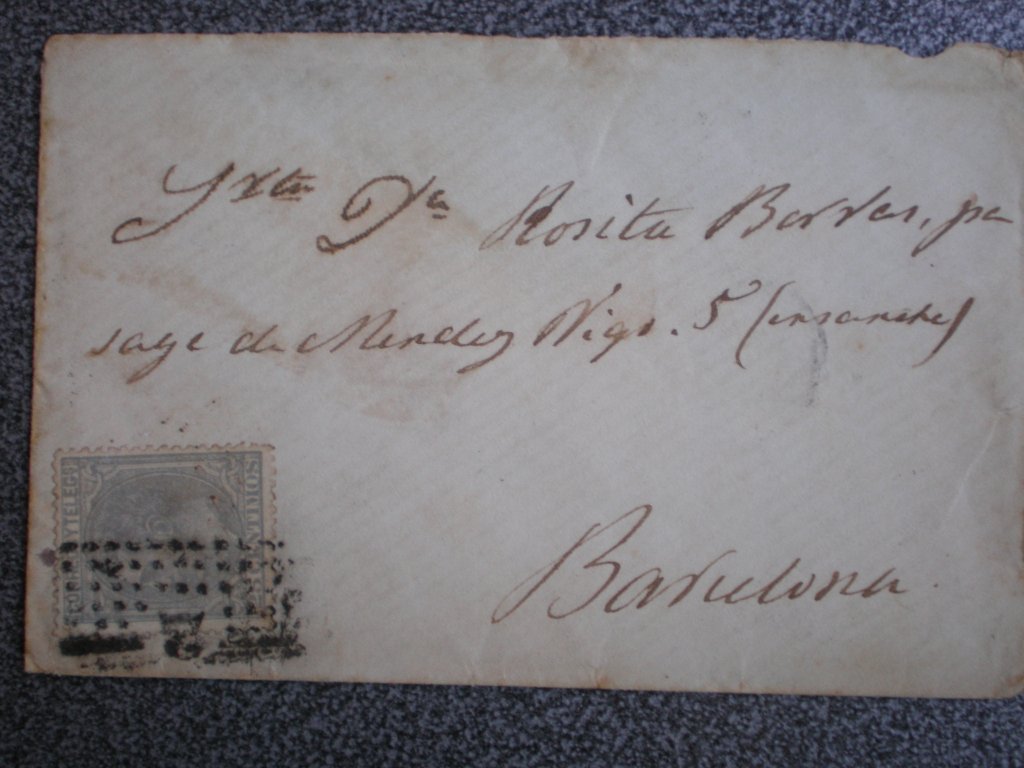 Srta Da Rosita Borras, pa
sage de Mendez Vigo. 5 (ensanche)
Barcelona.
CORREOS Y TELEGFOS
CENTIMOS